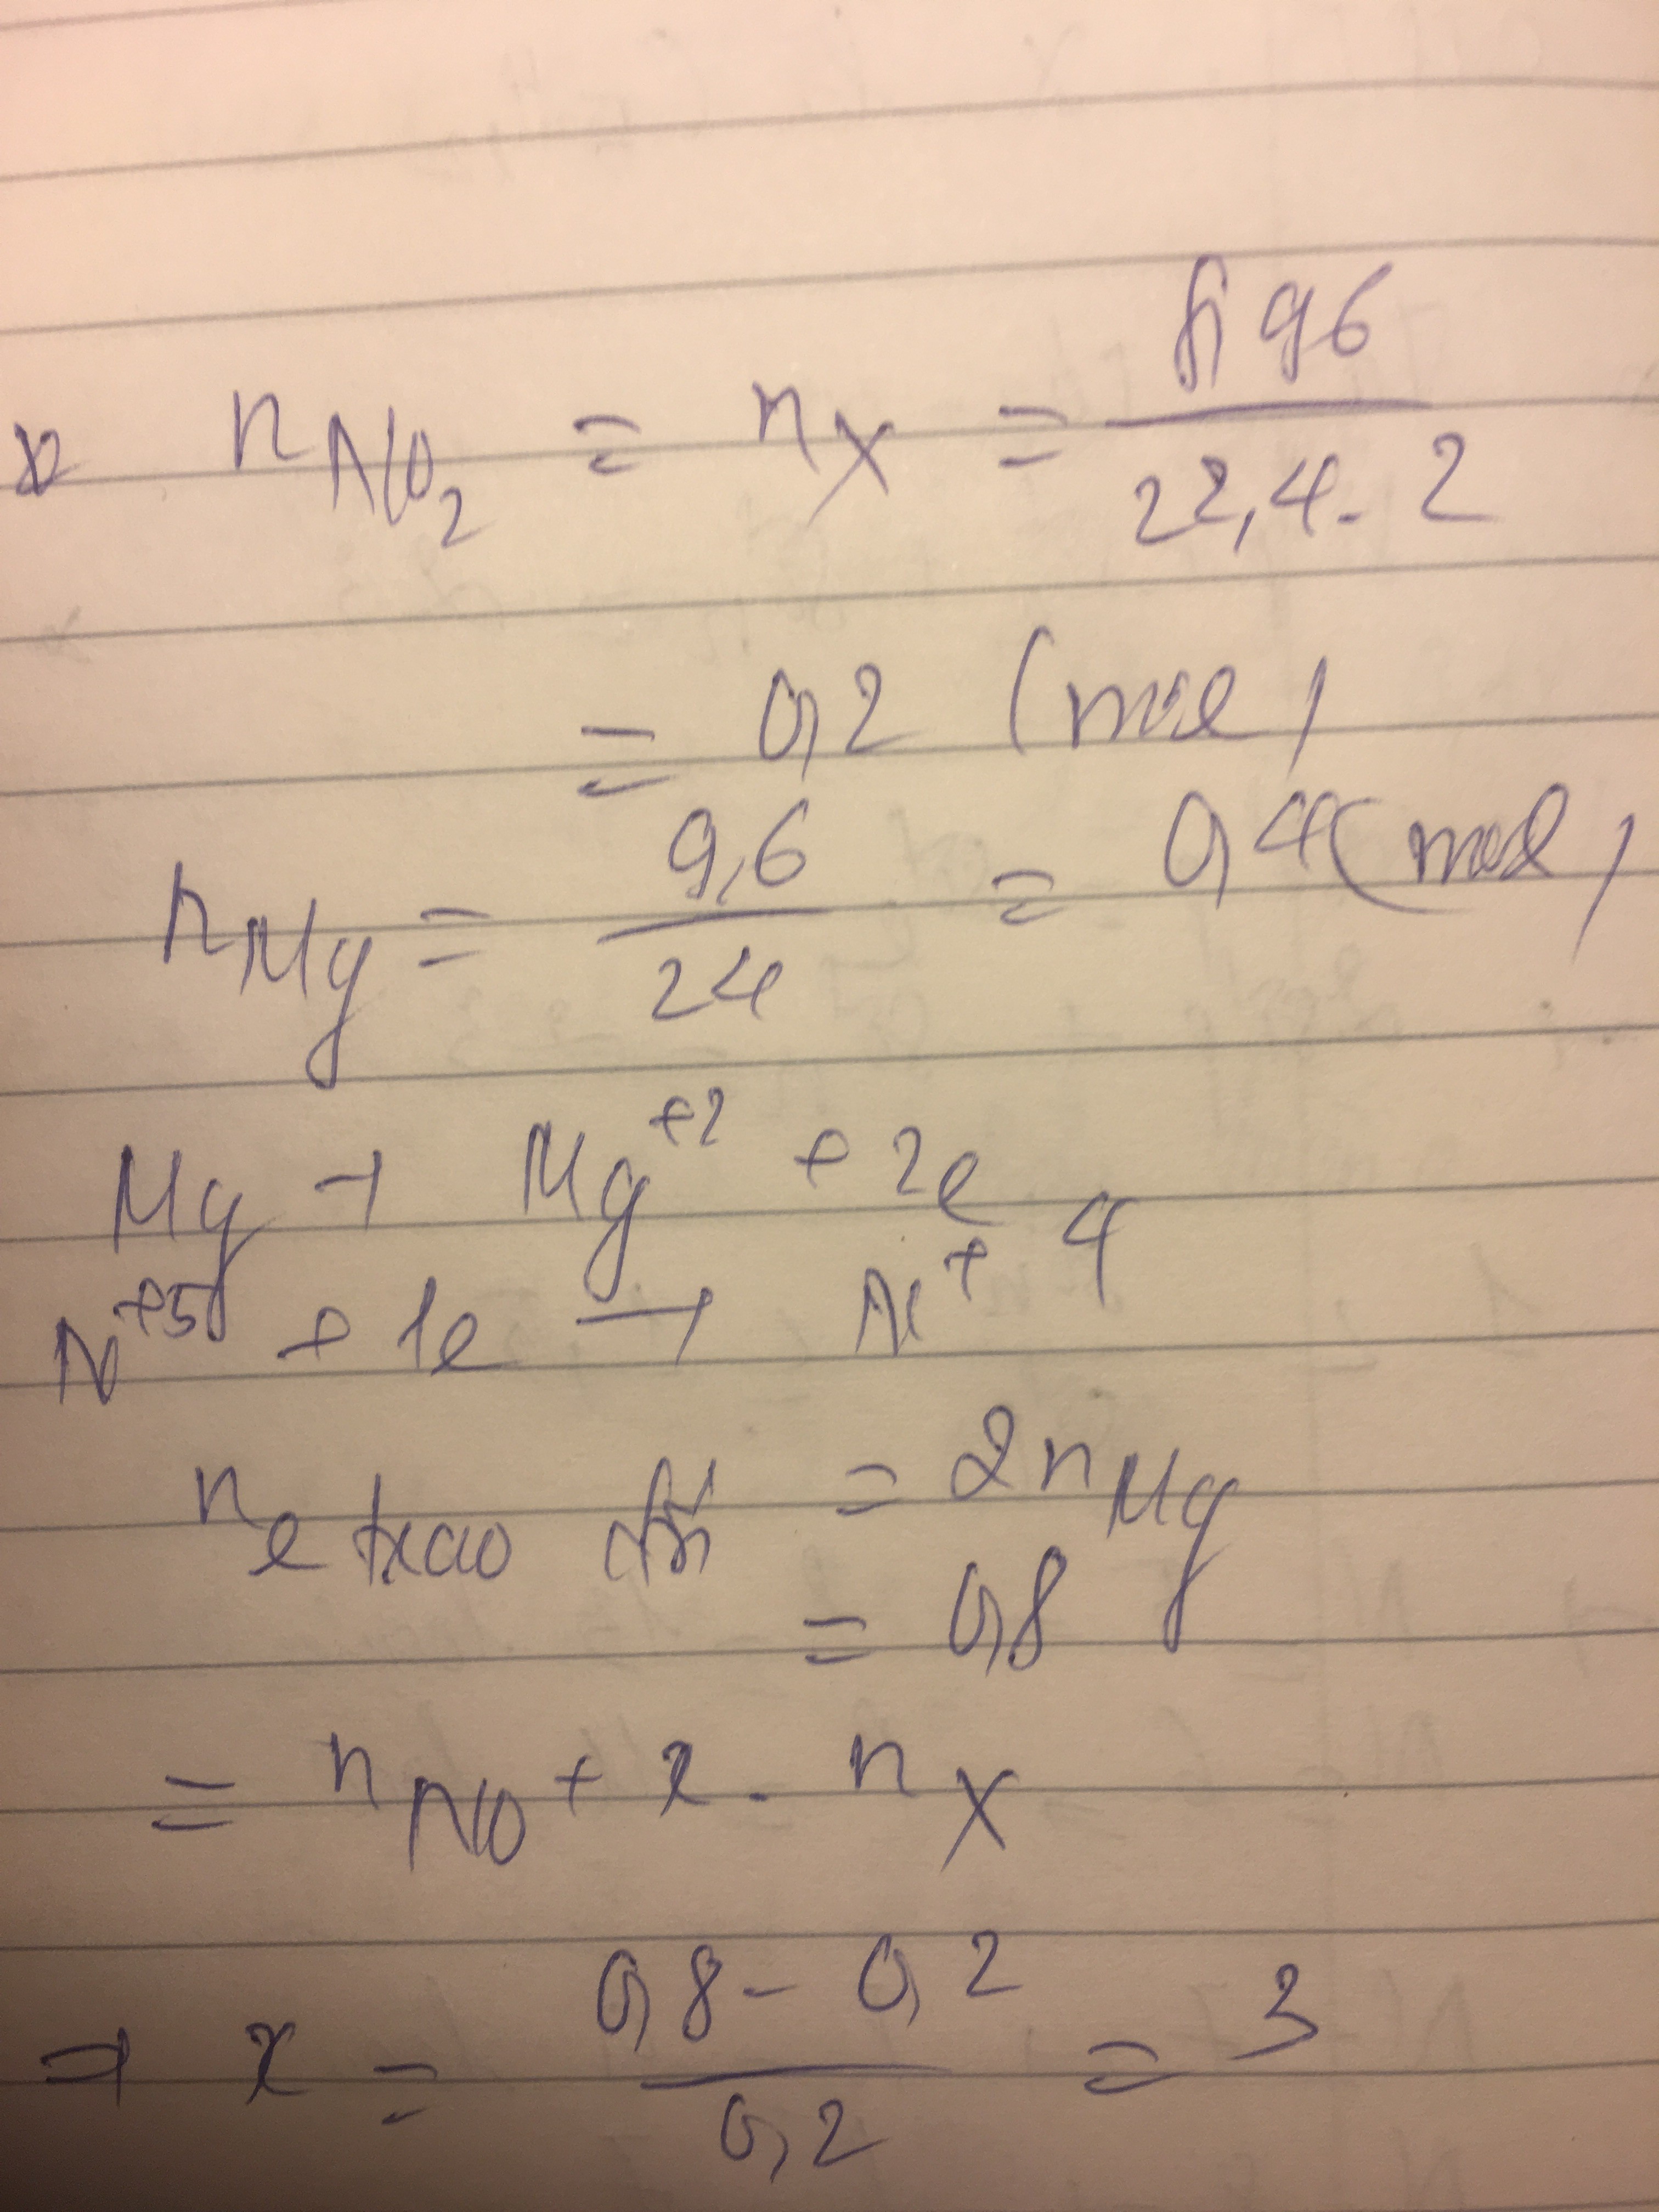 n NO2 = nX = 8,96 / 22,4. 2
= 0,2 (mol)
nMg = 9,6 / 24 = 0,4 (mol)
Mg → Mg+2 + 2e
N+5 + 1e → N+4
ne trao đổi = 2nMg
= 0,8
= nNO + x. nX
⇒ x = 0,8 - 0,2 / 0,2 = 3